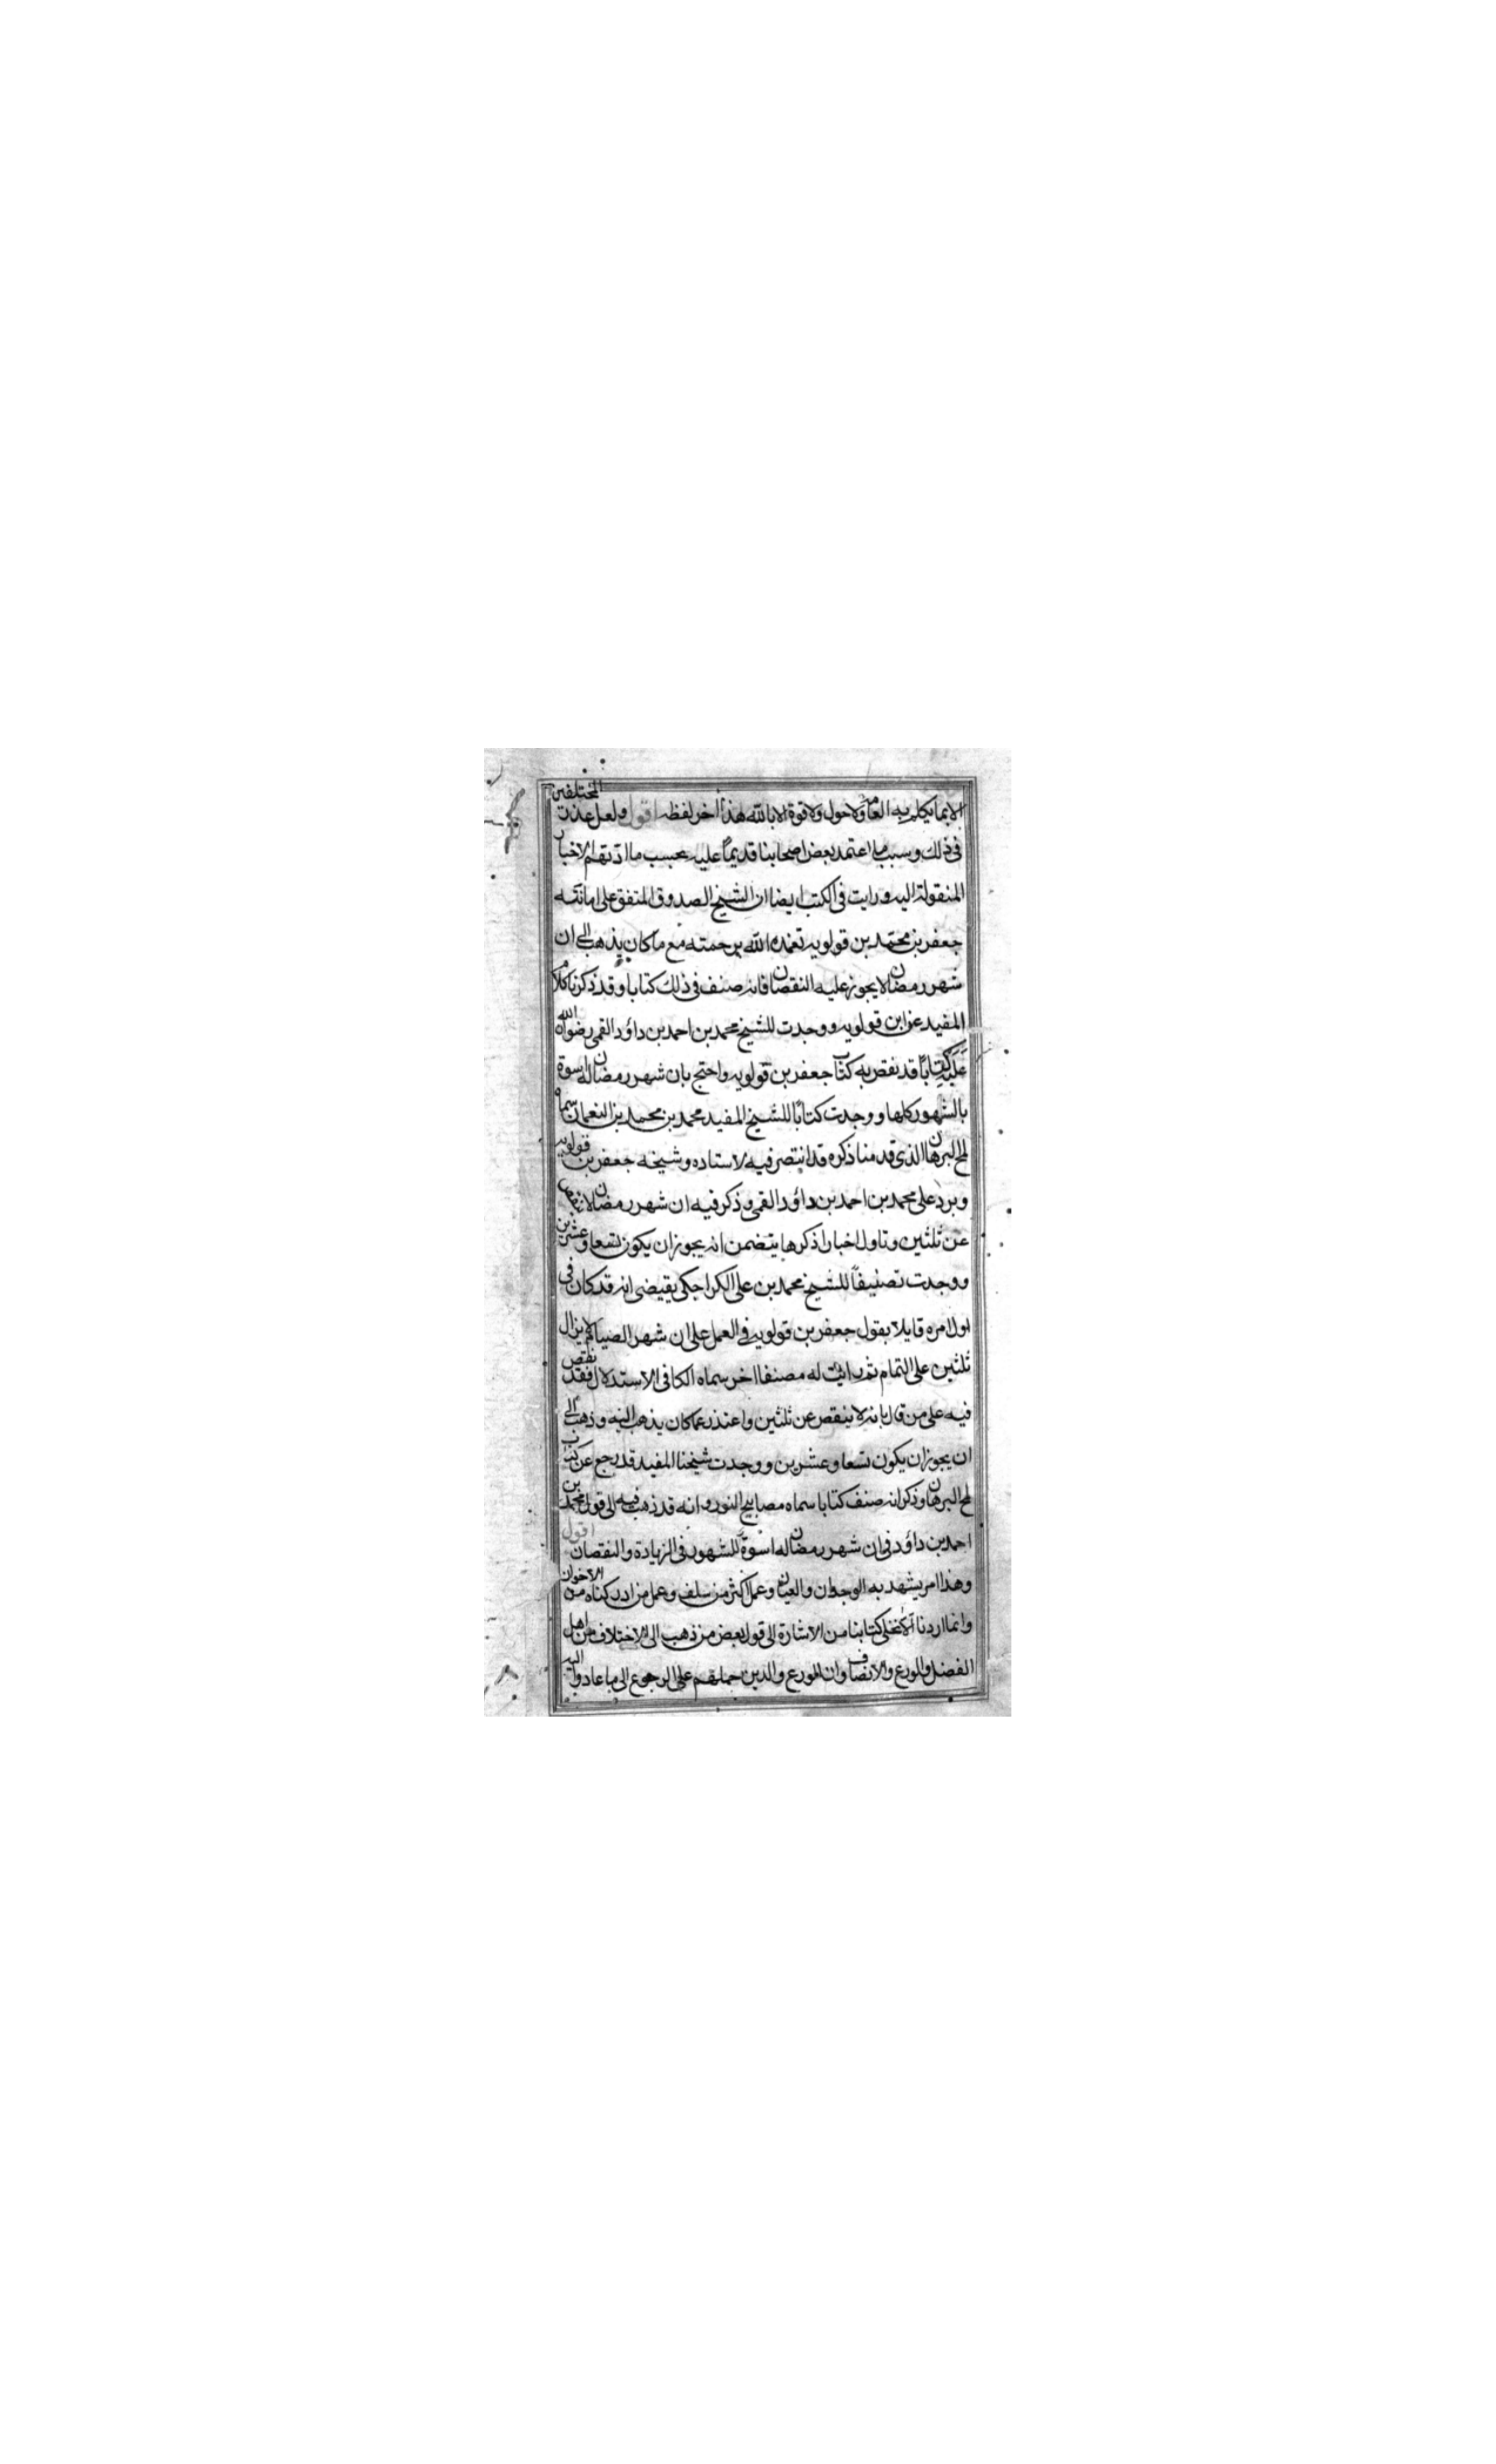 الا بما يكلم به العامة ولا حول ولا قوة الا بالله هذا اخر لفظه اقول ولعل عذر المختلفين
فى ذلك وسبب ما اعتمد بعض اصحابنا قديمًا عليه بحسب ما ادتهم الاخبار
المنقولة اليه ورايت فى الكتب ايضا ان الشيخ الصدوق المتفق على امانته
جعفر بن محمد بن قولويه تغمده الله برحمته مع ما كان يذهب الى ان
شهر رمضان لا يجوز عليه النقصان فانه صنف فى ذلك كتابا وقد ذكرنا كلام
المفيد عن ابن قولويه ووجدت للشيخ محمد بن احمد بن داؤد القمى رضوان الله
عليه كتابًا قد نقض به كتاب جعفر بن قولويه واحتج بان شهر رمضان له اسوة
بالشهور كلها ووجدت كتابًا للشيخ المفيد محمد بن محمد بن النعمان سماه
لمح البرهان الذى قدمنا ذكره قد انتصر فيه لاستاده وشيخه جعفر بن قولويه
ويرد على محمد بن احمد بن داؤد القمى وذكر فيه ان شهر رمضان لا ينقص
عن ثلثين وتاول اخبارا ذكرها يتضمن انه يجوز ان يكون تسعا وعشرين
ووجدت تصنيفاً للشيخ محمد بن على الكراجكى يقيضى انه قد كان فى
اول امره قايلا بقول جعفر بن قولويه فى العمل على ان شهر الصيام لا يزال
ثلثين على التمام ثم رايت له مصنفا اخر سماه الكافى الاستدلال فقد نقض
فيه على من قال بانه لا ينقص عن ثلثين واعتذر عما كان يذهب اليه وذهب الى
ان يجوز ان يكون تسعا وعشرين ووجدت شيخنا المفيد قد رجع عن كتاب
لمح البرهان وذكر انه صنف كتابا سماه مصابيح النور وانه قد ذهب فيه الى قول محمد بن
احمد بن داؤد فى ان شهر رمضان له اسوة للشهور فى الزيادة والنقصان اقول
وهذا امر يشهد به الوجدان والعيان وعمل اكثر من سلف وعمل من ادركناه من الاخوان
وانما اردنا ان لا نخلى كتابنا من الاشارة الى قول بعض من ذهب الى الاختلاف من اهل
الفضل والورع والانصاف وان الورع والدين حملهم على الرجوع الى ما عادوا اليه